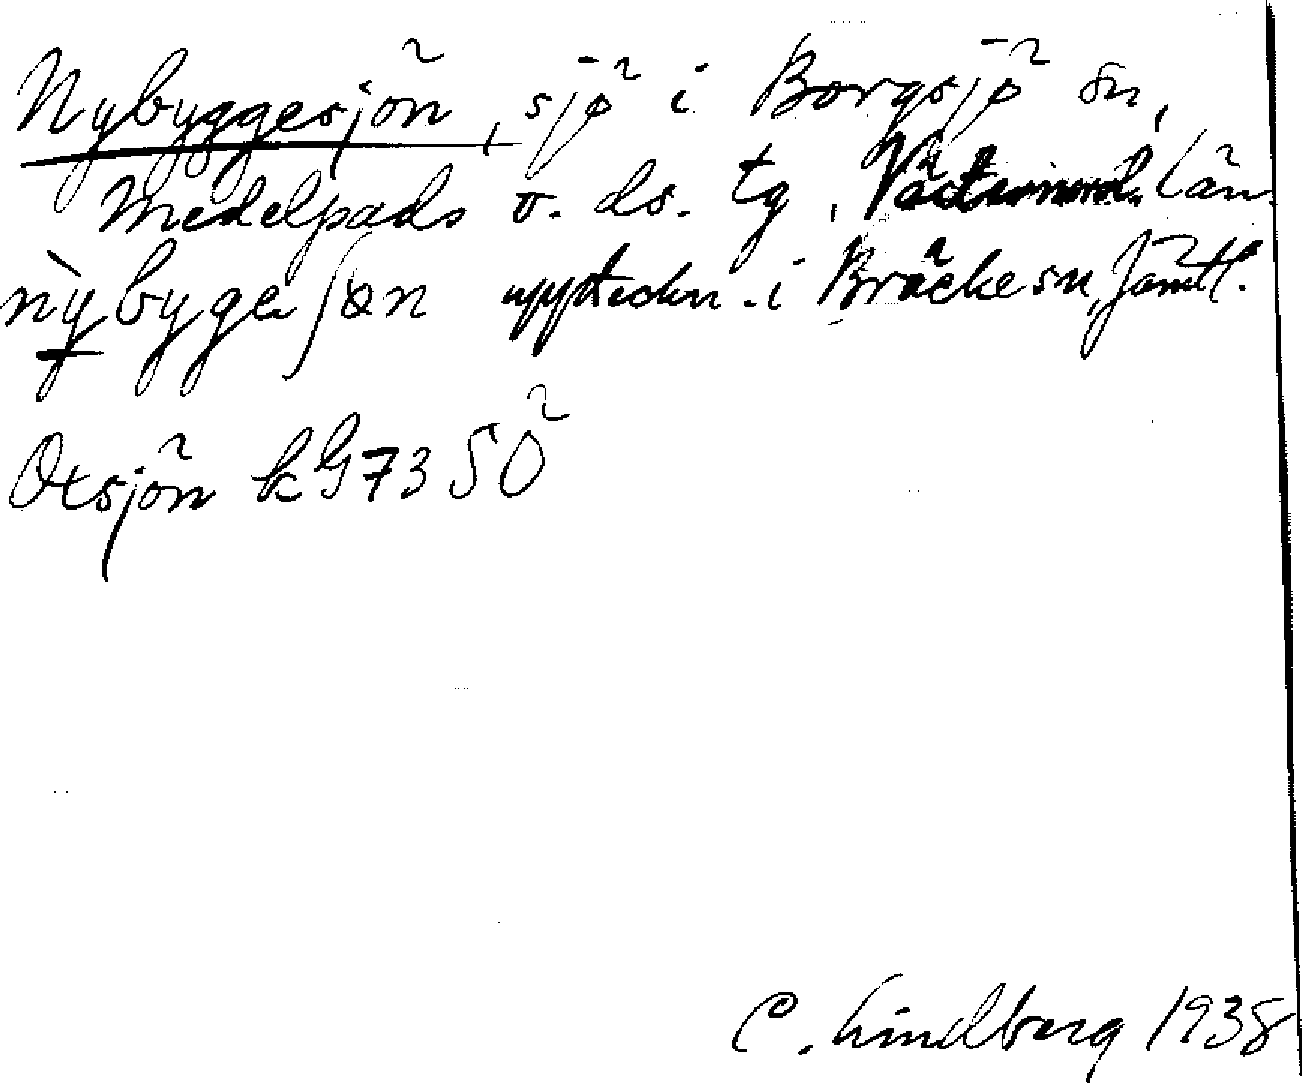 Nybyggesjön, sjö i Borgsjö sn,
Medelpads v. ds. tg, Västernorrl. län.
nỳbygeʃøn uppteckn. i Bräcke sn, Jämtl.
Otsjön k 973 SÖ
C. Lindberg 1938